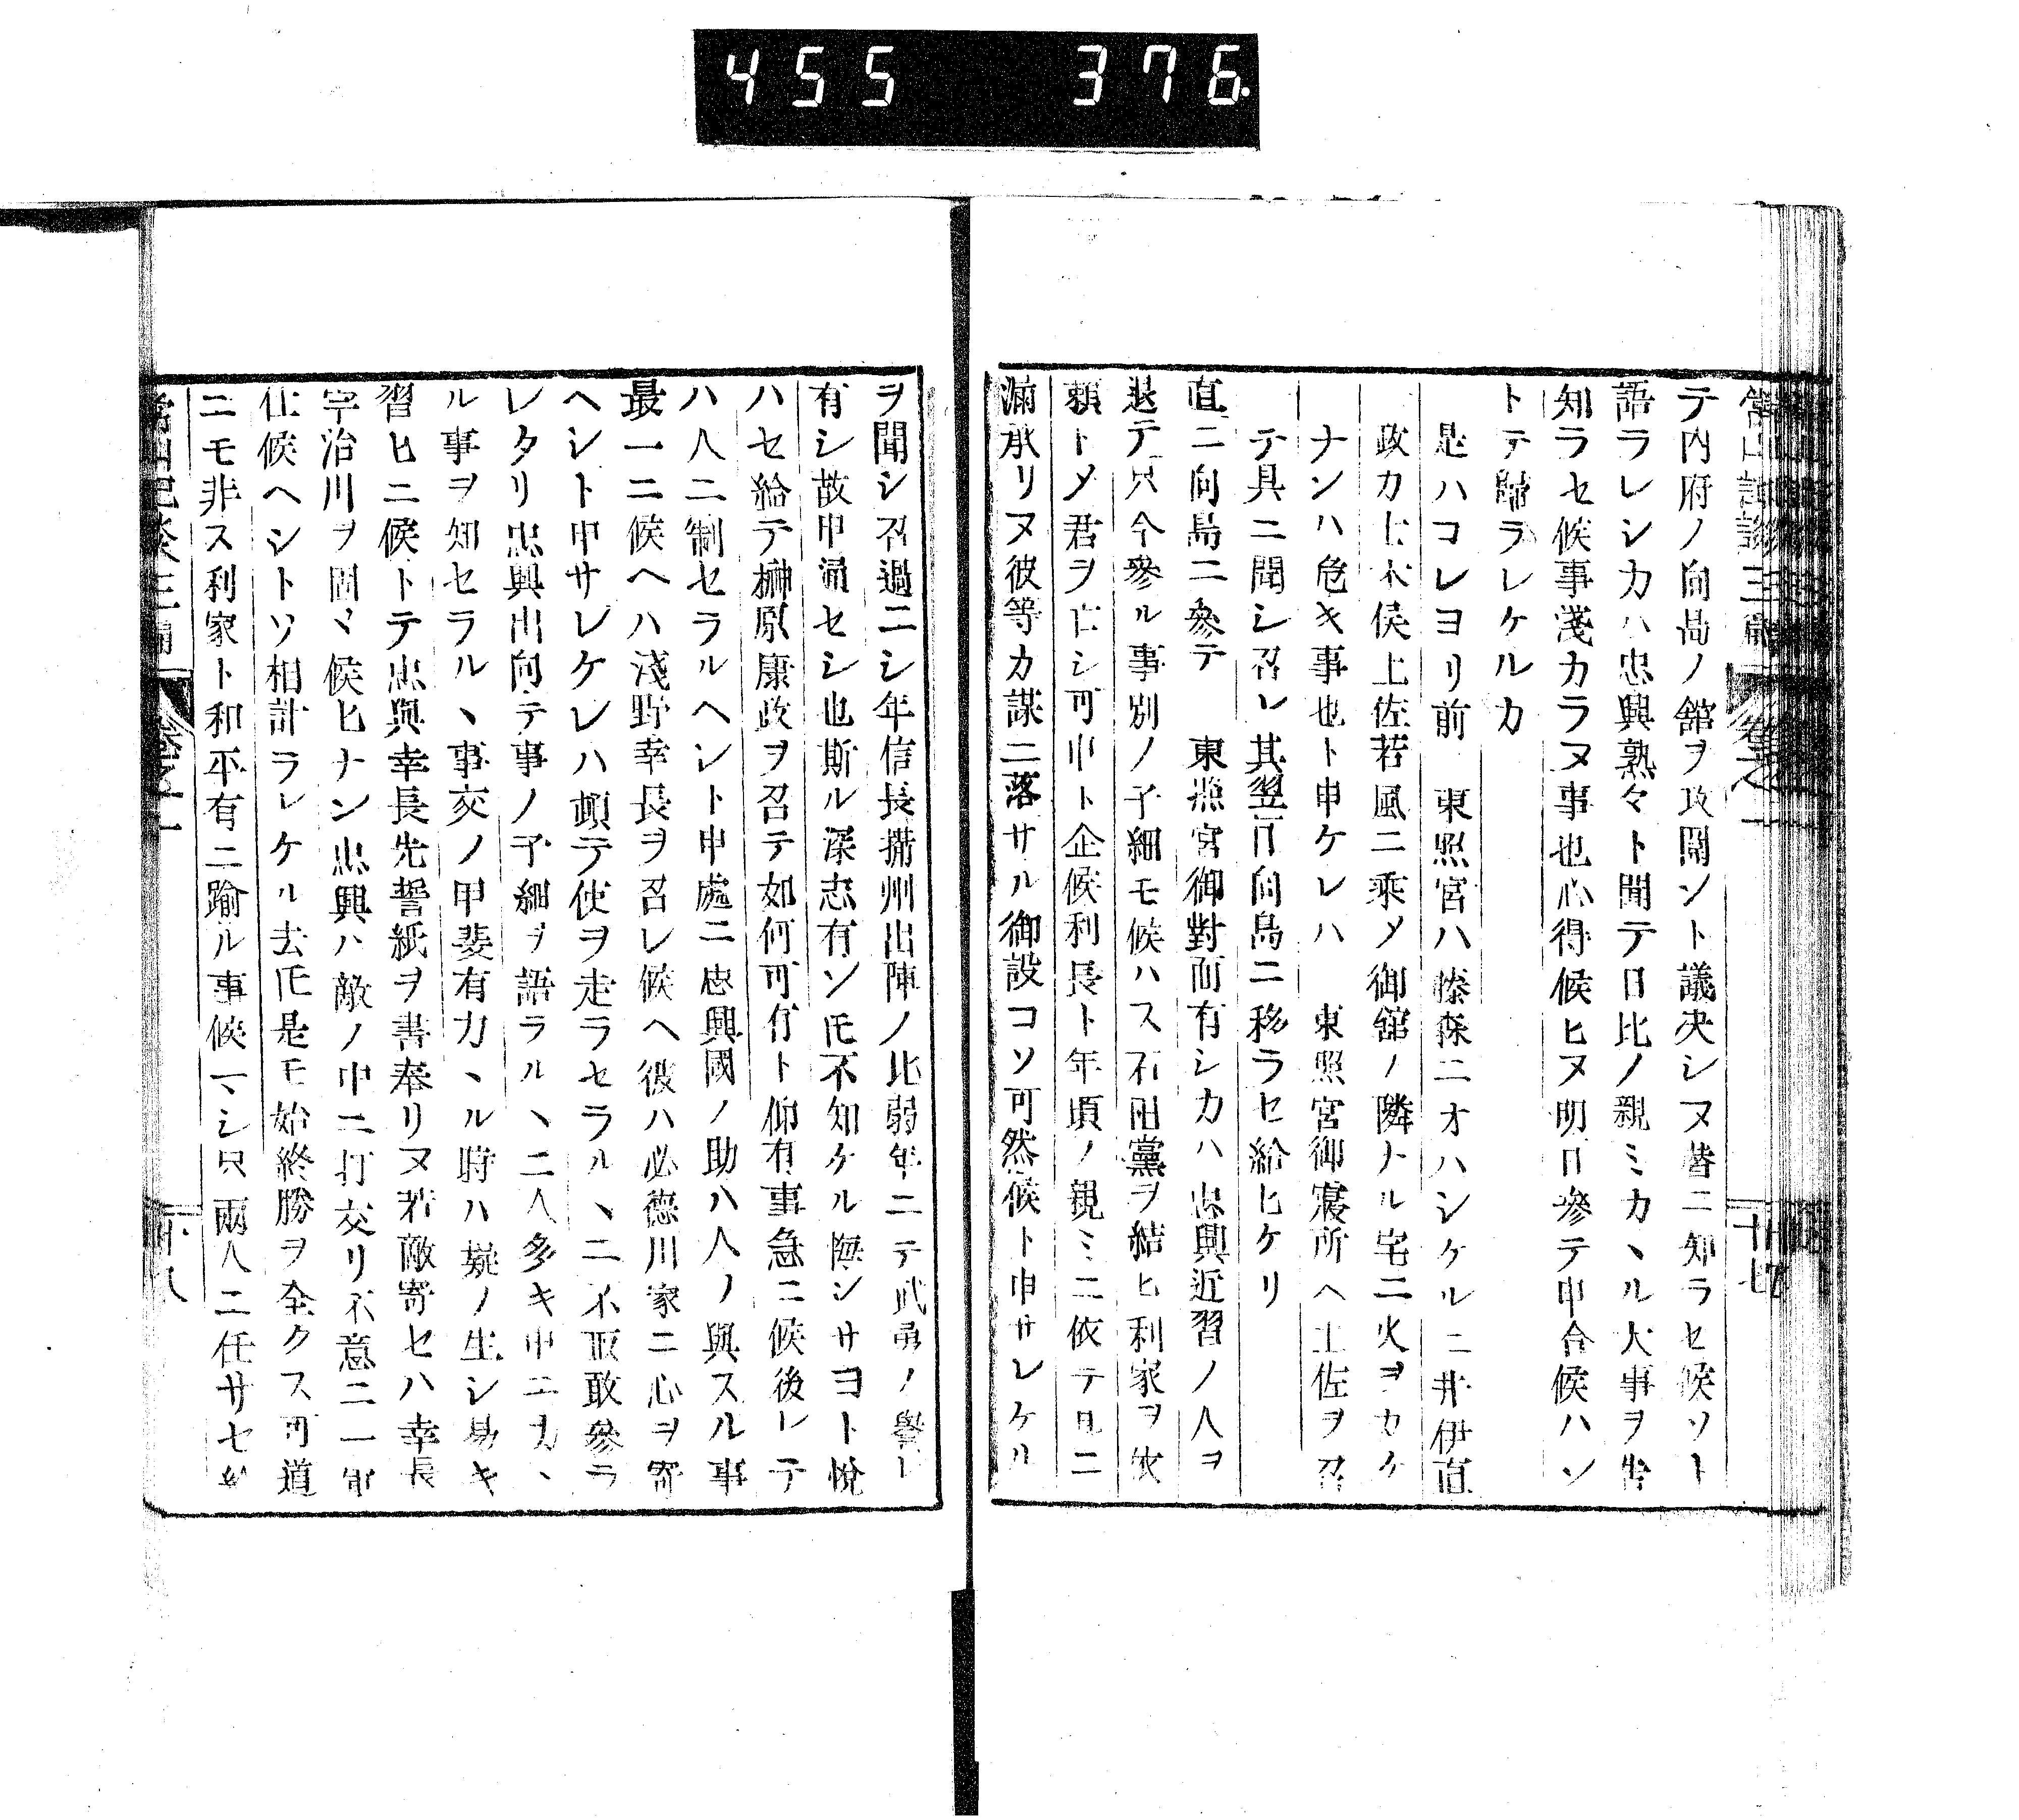 455 376
テ内府ノ向島ノ舘ヲ攻圍ント議决シヌ皆ニ知ラセ候ソト
語ラレシカハ忠興熟々ト聞テ日比ノ親ミカヽル大事ヲ告
知ラセ候事淺カラヌ事也心得候ヒヌ明日參テ申合候ハン
トテ歸ラレケルカ
是ハコレヨリ前 東照宮ハ藤森ニオハシケルニ井伊直
政カ士木俣土佐若風ニ乘メ御舘ノ隣ナル宅ニ火ヲカケ
ナンハ危キ事也ト申ケレハ 東照宮御寢所ヘ土佐ヲ召
テ具ニ聞シ召レ其翌日向島ニ移ラセ給ヒケリ
直ニ向島ニ參テ 東照宮御對面有シカハ忠興近習ノ人ヲ
退テ只今參ル事別ノ子細モ候ハス石田黨ヲ結ヒ利家ヲ
賴トメ君ヲ亡シ可申ト企候利長ト年頃ノ親ミニ依テ具ニ
承リヌ彼等カ謀ニ落サル御設コソ可然候ト申サレケル
ヲ聞シ召過ニシ年信長攝州出陣ノ比弱年ニテ武勇ノ譽レ
有シ故申通セシ也斯ル深志有ン𪜈不知ケル悔シサヨト悅
ハセ給テ榊原康政ヲ召テ如何可有ト仰有事急ニ候後レテ
ハ人ニ制セラルヘント申處ニ忠興國ノ助ハ人ノ與スル事
最一ニ候ヘハ淺野幸長ヲ召レ候ヘ彼ハ必德川家ニ心ヲ寄
ヘシト申サレケレハ頓テ使ヲ走ラセラルヽニ不取敢參ラ
レタリ忠興出向テ事ノ子細ヲ語ラルヽニ人多キ中ニカヽ
ル事ヲ知セラルヽ事交ノ甲斐有カヽル時ハ疑ノ生シ易キ
習ヒニ候トテ忠興幸長先誓紙ヲ書奉リヌ若敵寄セハ幸長
宇治川ヲ固メ候ヒナン忠興ハ敵ノ中ニ打交リ不意ニ一軍
仕候ヘシトソ相計ラレケル去𪜈是モ始終勝ヲ全クス可道
ニモ非ス利家ト和平有ニ踰ル事候マシ只兩人ニ任サセ給